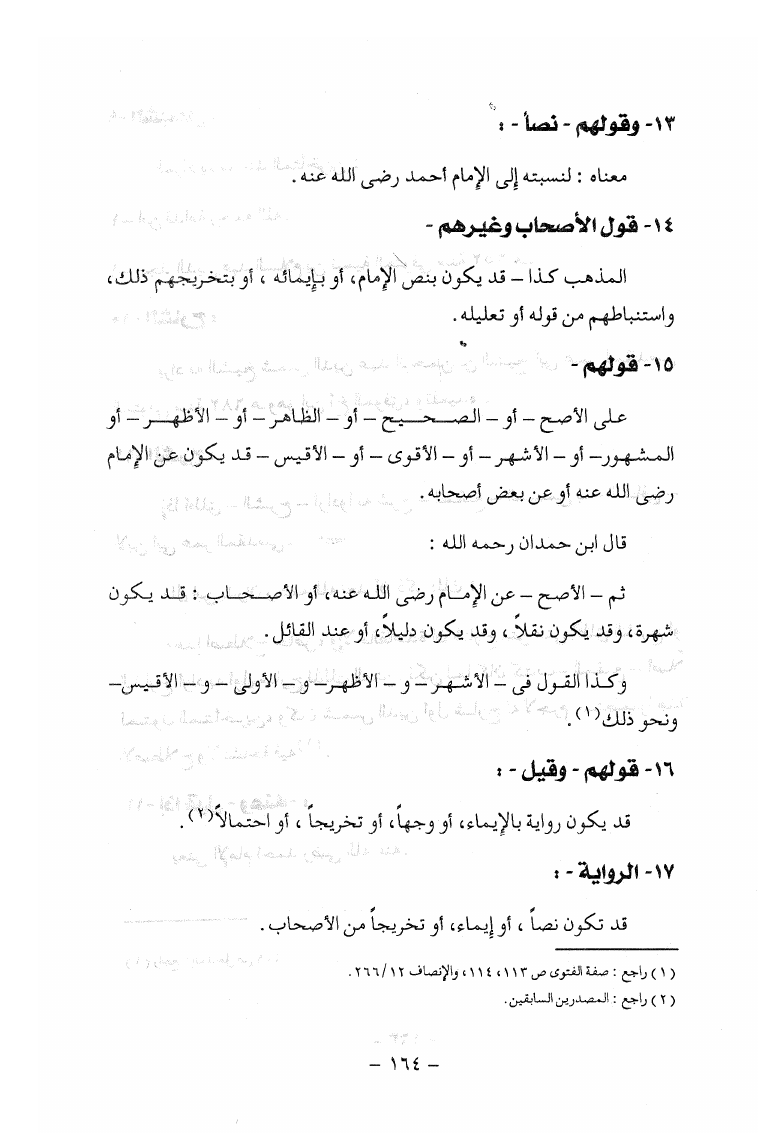 ١٣- وقولهم - نصاً - :
معناه : لنسبته إلى الإمام أحمد رضى الله عنه .
١٤- قول الأصحاب وغيرهم -
المذهب كذا – قد يكون بنص الإمام، أو بإيمائه ، أو بتخريجهم ذلك،
واستنباطهم من قوله أو تعليله .
١٥- قولهم -
على الأصح – أو – الصـحـيـح – أو – الظاهر – أو – الأظهـر – أو
المشهور– أو – الأشهر – أو – الأقوى – أو – الأقيس – قد يكون عن الإمام
رضى الله عنه أو عن بعض أصحابه .
قال ابن حمدان رحمه الله :
ثم – الأصح – عن الإمـام رضى اللـه عنه، أو الأصـحـاب : قد يكون
شهرة، وقد يكون نقلاً ، وقد يكون دليلاً، أو عند القائل .
وكـذا القول فى – الأشهـر – و – الأظهر– و – الأولى – و – الأقيس–
ونحو ذلك(١) .
١٦- قولهم - وقيل - :
قد يكون رواية بالإيماء، أو وجهاً، أو تخريجاً ، أو احتمالاً(٢) .
١٧- الرواية - :
قد تكون نصاً ، أو إيماء، أو تخريجاً من الأصحاب .
(١) راجع : صفة الفتوى ص ١١٣، ١١٤، والإنصاف ٢٦٦/١٢ .
(٢) راجع : المصدرين السابقين .
– ١٦٤ –